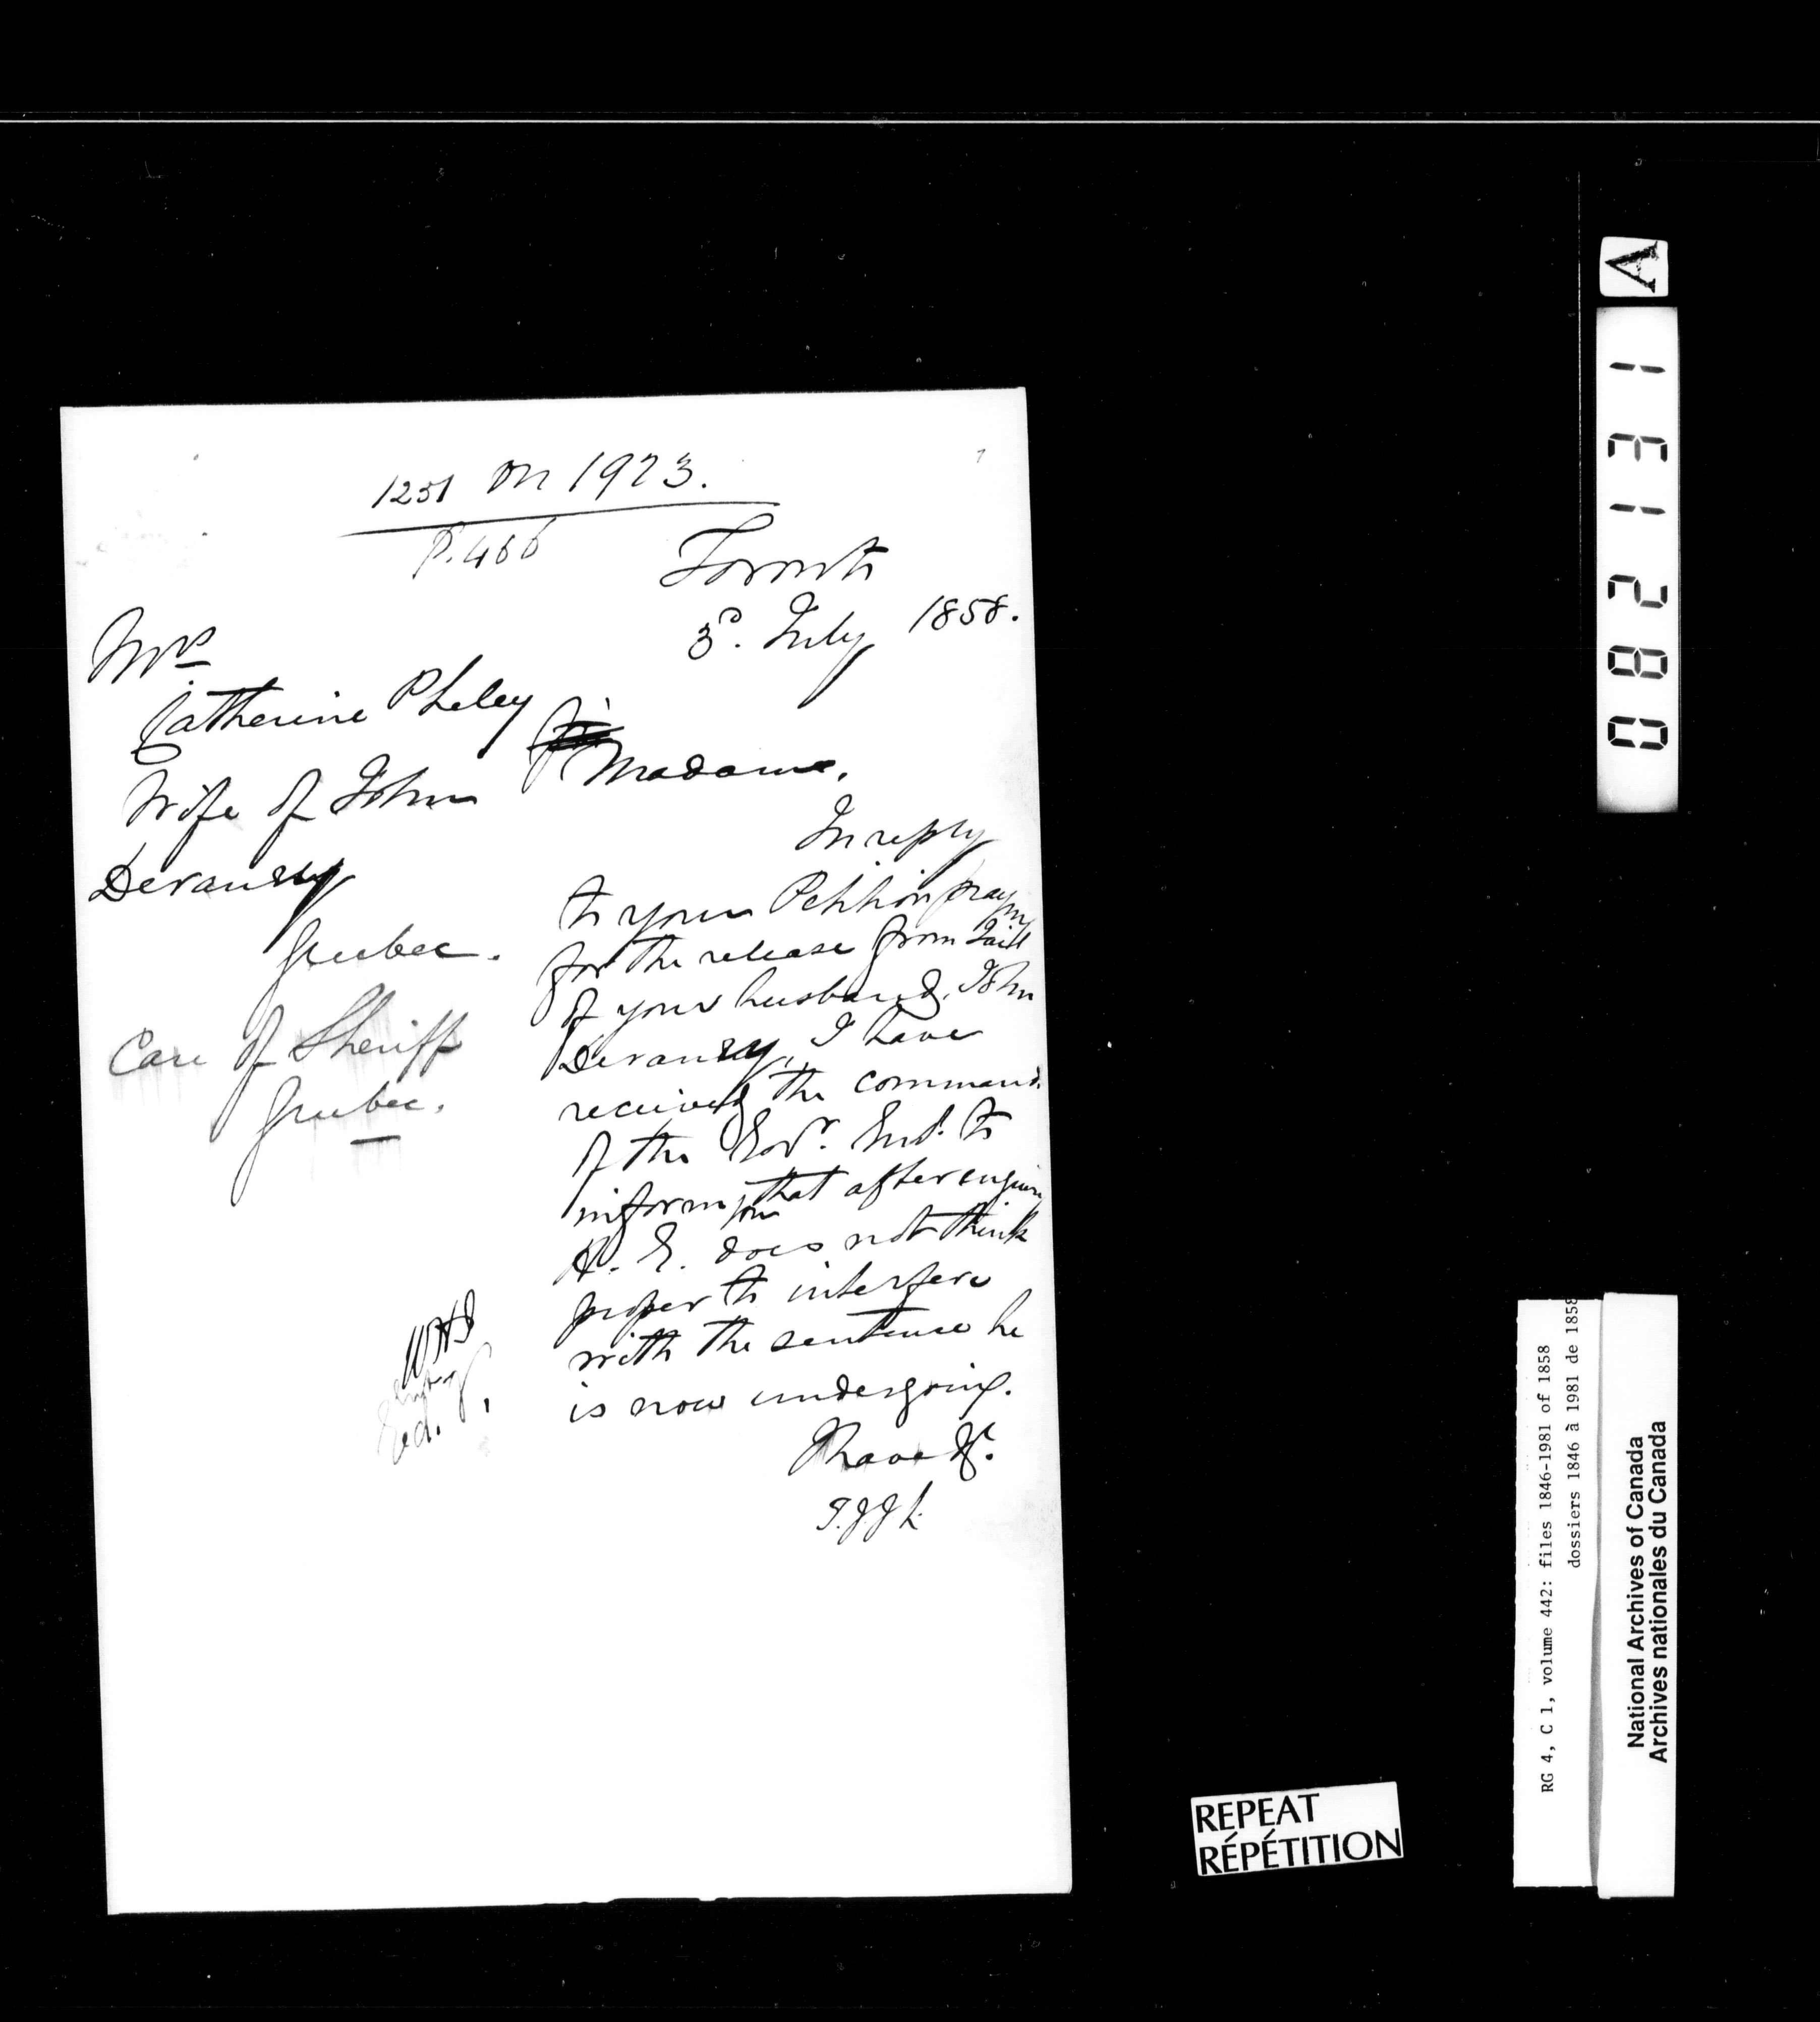 1251 on 1923.
P. 466
Toronto
3d. July 1858.
Mrs
Catherine Pheley
Wife of John
Devaney
Quebec.
Care of Sheriff
Quebec.
Madame,
In reply
to your Petition praying
for the release from Jail
of your husband, John
Devaney, I have
received the command
of the Govr. Genl. to
inform you that after enquiry
H. E. does not think
proper to interfere
with the sentence he
is now undergoing.
I have &c.
T.J.J.L.
A
131280
RG 4, C 1, volume 442: files 1846-1981 of 1858
dossiers 1846 à 1981 de 1858
National Archives of Canada
Archives nationales du Canada
REPEAT
RÉPÉTITION